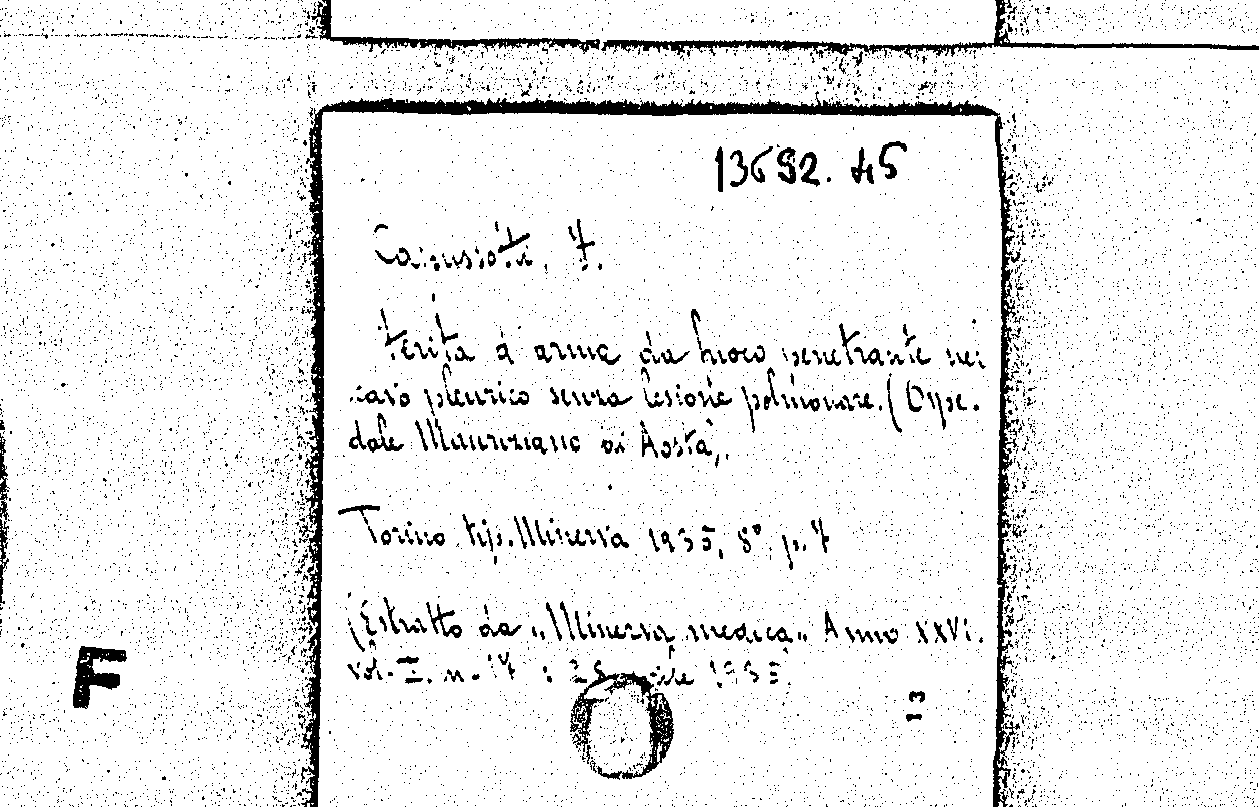 13692. 45
F.
Ferita d'arma da fuoco penetrante nel
cavo pleurico senza lesione polmonare. (Ospe-
dale Mauriziano di Aosta).
Torino tip. Minerva 1935, 8° p. 7
(Estratto da „Minerva medica„ Anno XXVI.
vol. I. n. 17 : aprile 1935
F
13